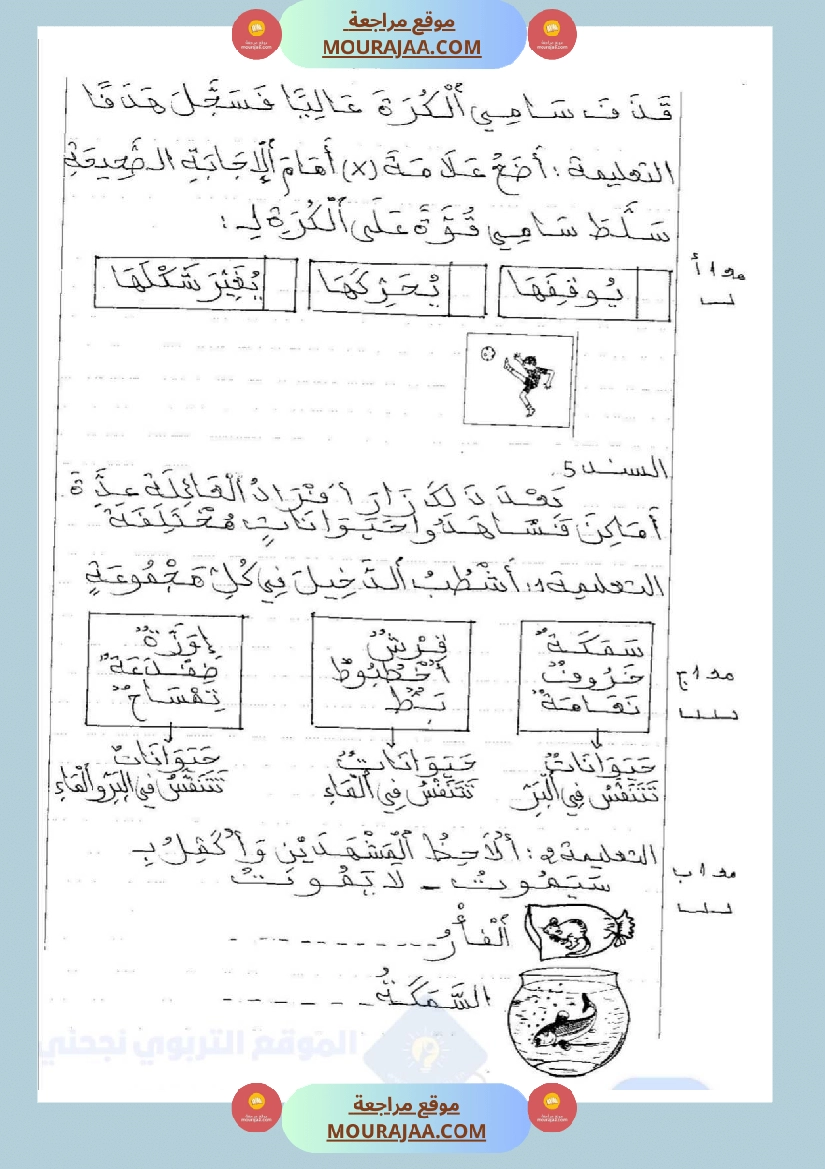 موقع مراجعة
MOURAJAA.COM
قَذَفَ سَامِي ٱلْكُرَةَ عَالِيًا فَسَجَّلَ هَدَفًا
التعليمة : أَضَعُ عَلَامَةَ (x) أَمَامَ ٱلْإِجَابَةِ الصَّحِيحَةِ
سَلَّطَ سَامِي قُوَّةً عَلَى ٱلْكُرَةِ لِـ :
مع 1 أ
يُوقِفَهَا
يُحَرِّكَهَا
يُغَيِّرَ شَكْلَهَا
السند 5
بَعْدَ ذَلِكَ زَارَ أَفْرَادُ الْعَائِلَةِ عِدَّةَ
أَمَاكِنَ فَشَاهَدُوا حَيَوَانَاتٍ مُخْتَلِفَةً
التعليمة 1 : أَشْطُبُ ٱلدَّخِيلَ فِي كُلِّ مَجْمُوعَةٍ
مع 1 ج
سَمَكَةٌ
خَرُوفٌ
نَعَامَةٌ
حَيَوَانَاتٌ
تَتَنَفَّسُ فِي ٱلْبَرِّ
قِرْشٌ
أُخْطُبُوطٌ
بَطٌّ
حَيَوَانَاتٌ
تَتَنَفَّسُ فِي ٱلْمَاءِ
إِوَزَّةٌ
ضِفْدَعَةٌ
تِمْسَاحٌ
حَيَوَانَاتٌ
تَتَنَفَّسُ فِي ٱلْبَرِّ وَٱلْمَاءِ
التعليمة 2 : أُلَاحِظُ ٱلْمَشْهَدَيْنِ وَأُكْمِلُ بِـ
مع 1 ب
سَيَمُوتُ - لا يَمُوتُ
ٱلْفَأْرُ - - - - - - - - - -
السَّمَكَةُ - - - - - - -
الموقع التربوي نجحني
موقع مراجعة
MOURAJAA.COM